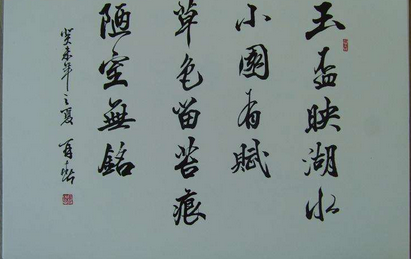 玉盃映湖水
小園有賦
草色留苔痕
陋室無銘
癸未年之夏